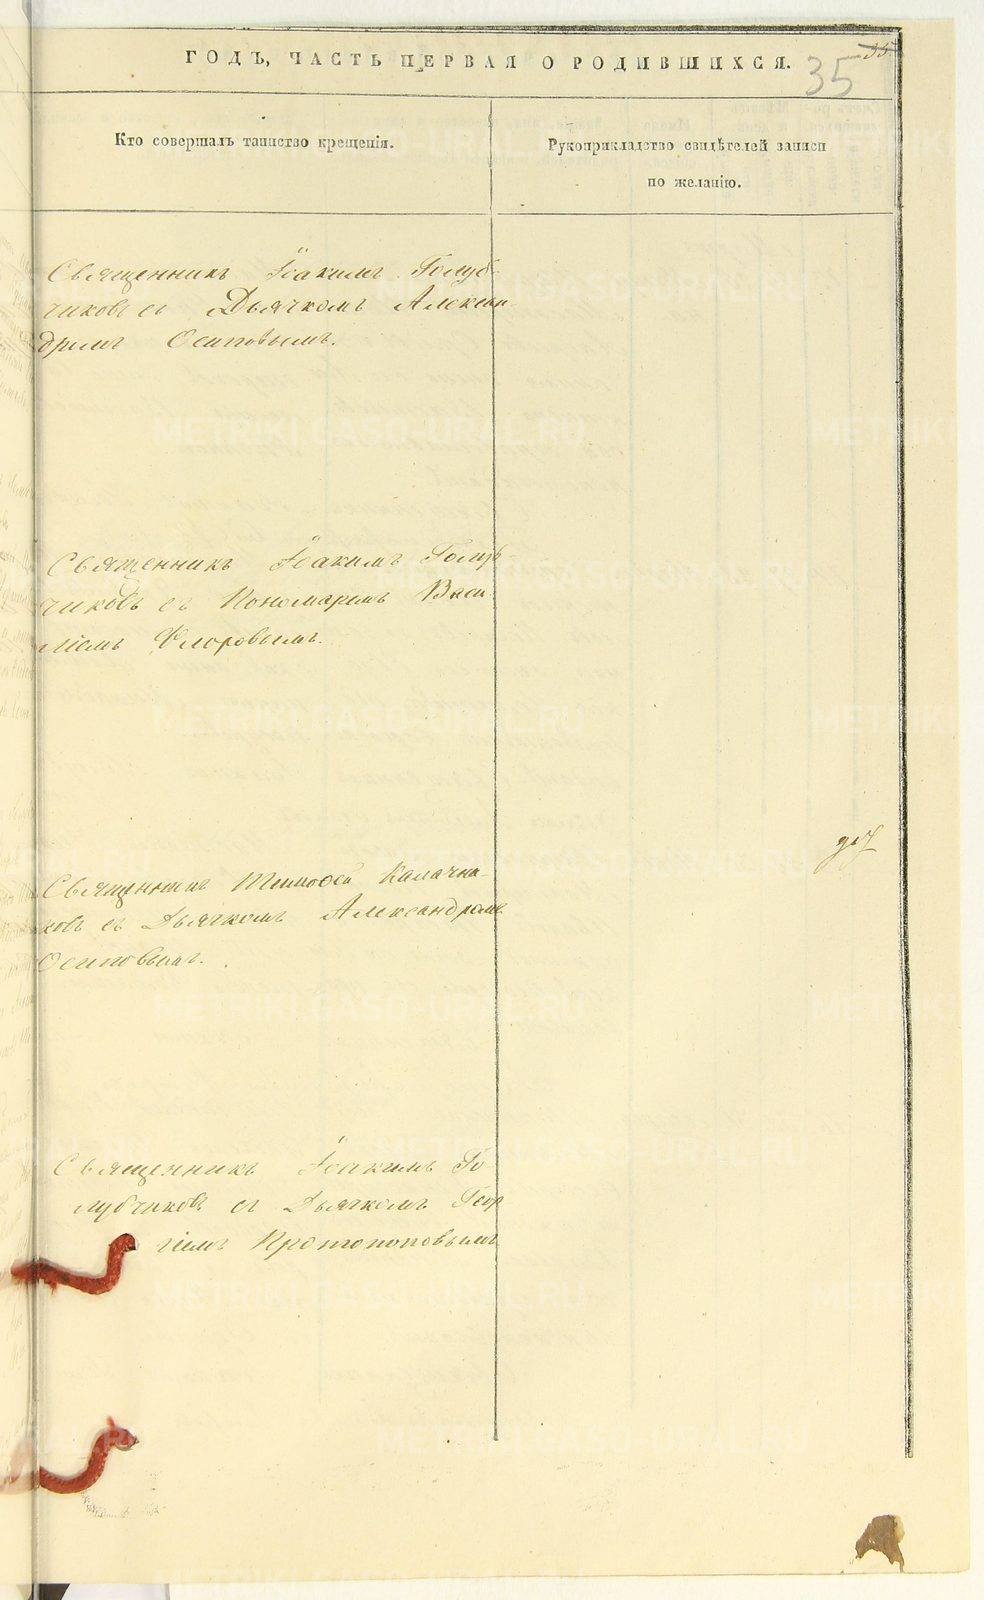 ГОДЪ, ЧАСТЬ ПЕРВАЯ О РОДИВШИХСЯ.
35
Кто совершалъ таинство крещенія.
Рукоприкладство свидѣтелей записи
по желанію.
Священникъ Іоакимъ Голуб-
чиковъ съ Дьячкомъ Алексан
дромъ Осиповымъ.
Священникъ Іоакимъ Голуб-
чиковъ съ Пономаремъ Васи
ліемъ Флоровымъ.
Священникъ Тимоѳей Калачни-
ковъ съ Дьячкомъ Александромъ
Осиповымъ.
Священникъ Іоакимъ Го
лубчиковъ съ Дьячкомъ Геор
гіемъ Протопоповымъ
METRIKI.GASO-URAL.RU